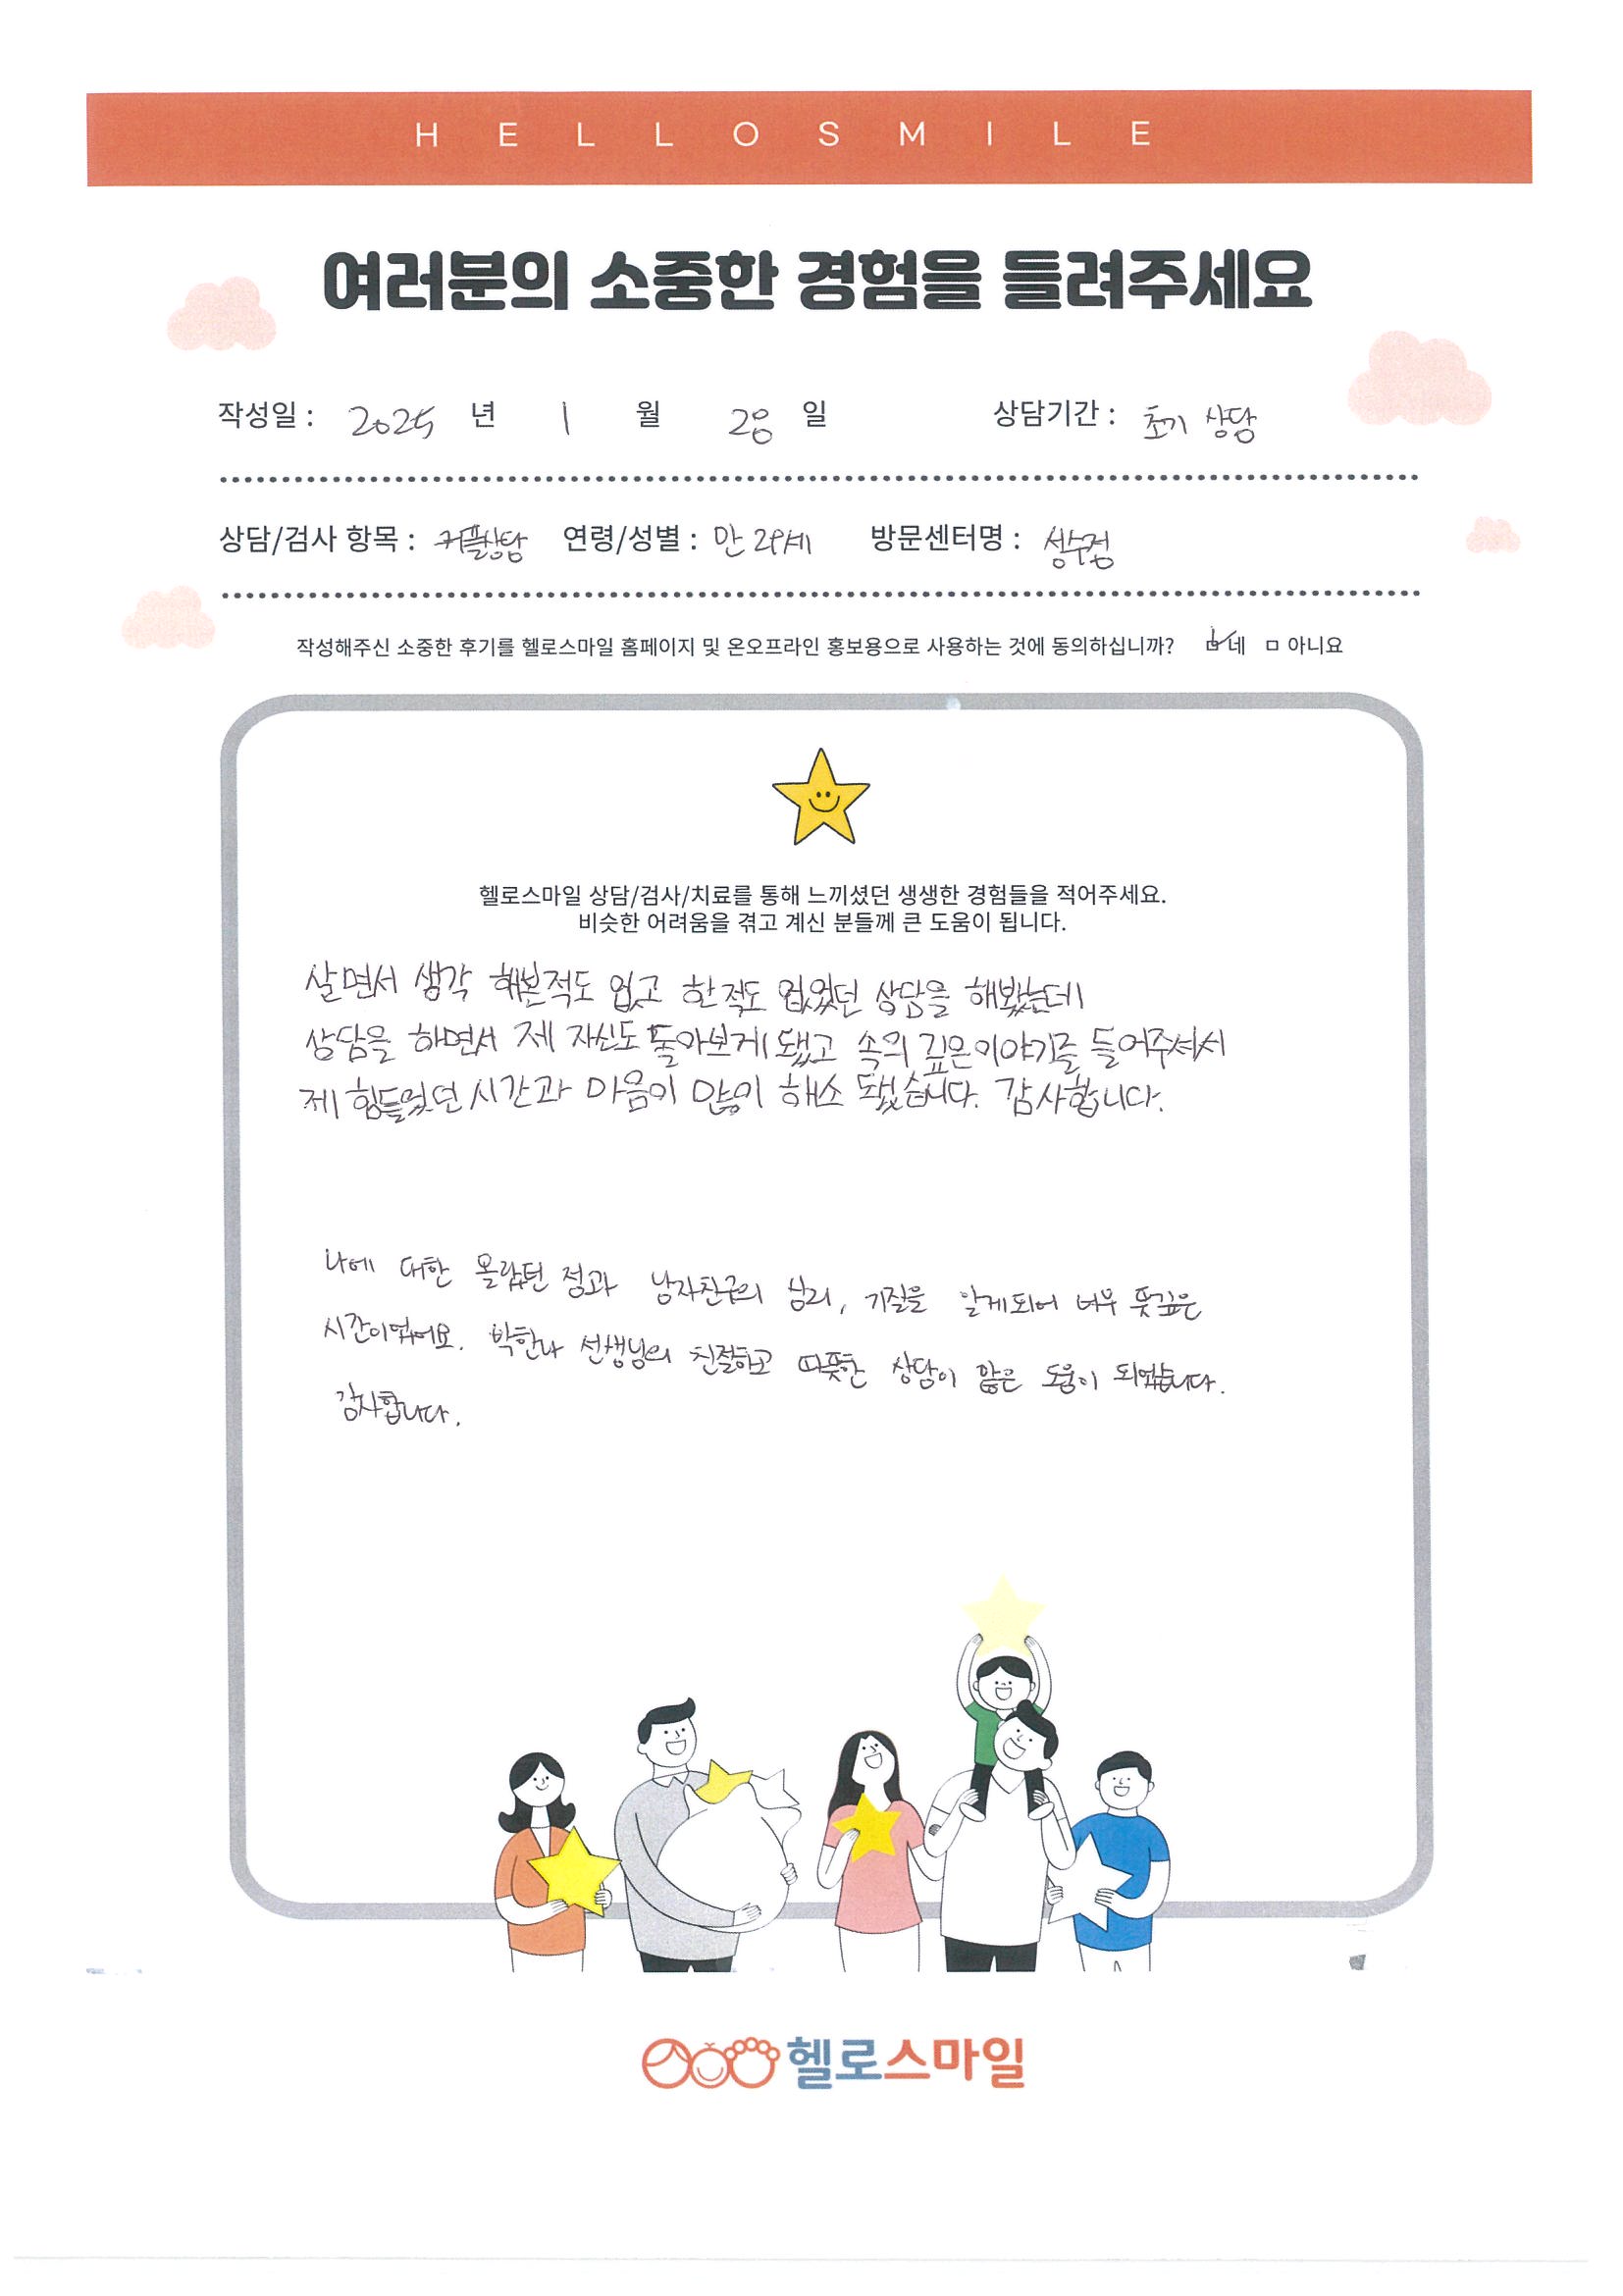 HELLOSMILE
여러분의 소중한 경험을 들려주세요
작성일 : 2025 년 1 월 28 일 상담기간 : 초기 상담
상담/검사 항목 : 커플상담 연령/성별 : 만 29세 방문센터명 : 성수점
작성해주신 소중한 후기를 헬로스마일 홈페이지 및 온오프라인 홍보용으로 사용하는 것에 동의하십니까? ☑ 네 □ 아니요
헬로스마일 상담/검사/치료를 통해 느끼셨던 생생한 경험들을 적어주세요.
비슷한 어려움을 겪고 계신 분들께 큰 도움이 됩니다.
살면서 생각 해본적도 없고 한적도 없었던 상담을 해봤는데
상담을 하면서 제 자신도 돌아보게 됐고 속의 깊은이야기를 들어주셔서
제 힘들었던 시간과 마음이 많이 해소 됐습니다. 감사합니다.
나에 대한 몰랐던 점과 남자친구의 심리, 기질을 알게되어 너무 뜻깊은
시간이였어요. 박한나 선생님의 친절하고 따뜻한 상담이 많은 도움이 되었습니다.
감사합니다.
헬로스마일